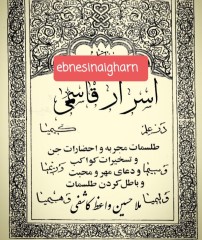 ebnesinaigharn
اسرار قاسمی
در علم کیمیا
طلسمات مجربه و احضارات جن
و تسخیرات کواکب
و دعای مهر و محبت
و باطل کردن طلسمات
ملا حسین واعظ کاشفی